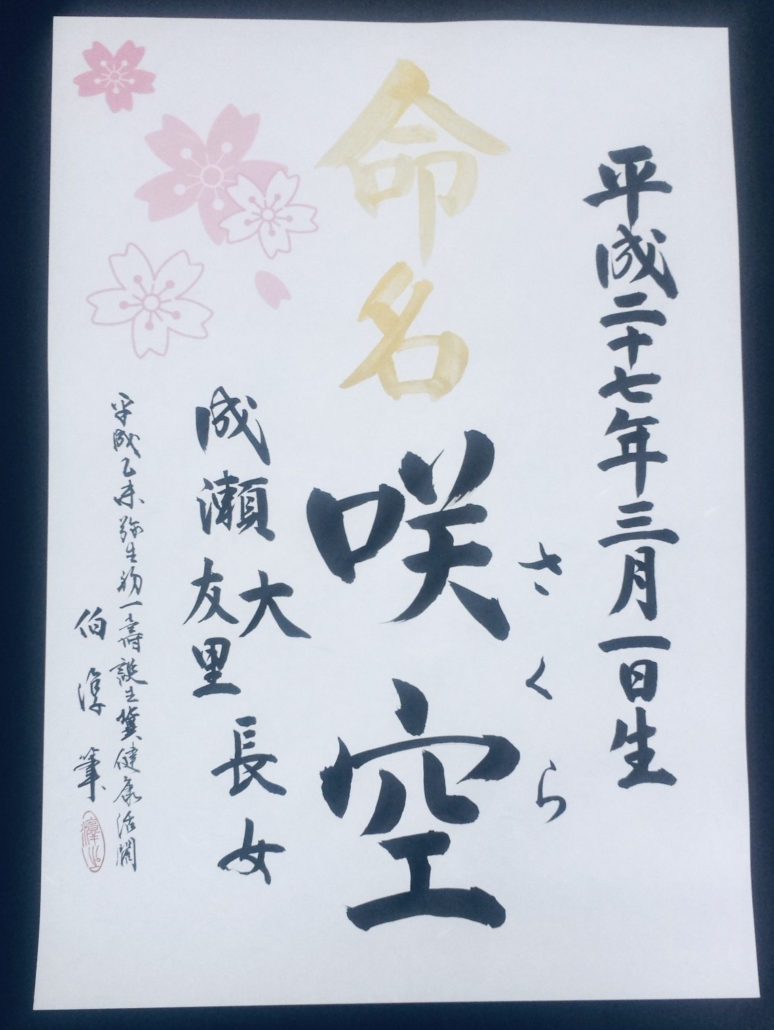 平成二十七年三月一日生
命名
咲空
さくら
成瀬
大
友里
長女
平成乙未弥生初一壽誕之冀健康活闊
伯淳筆